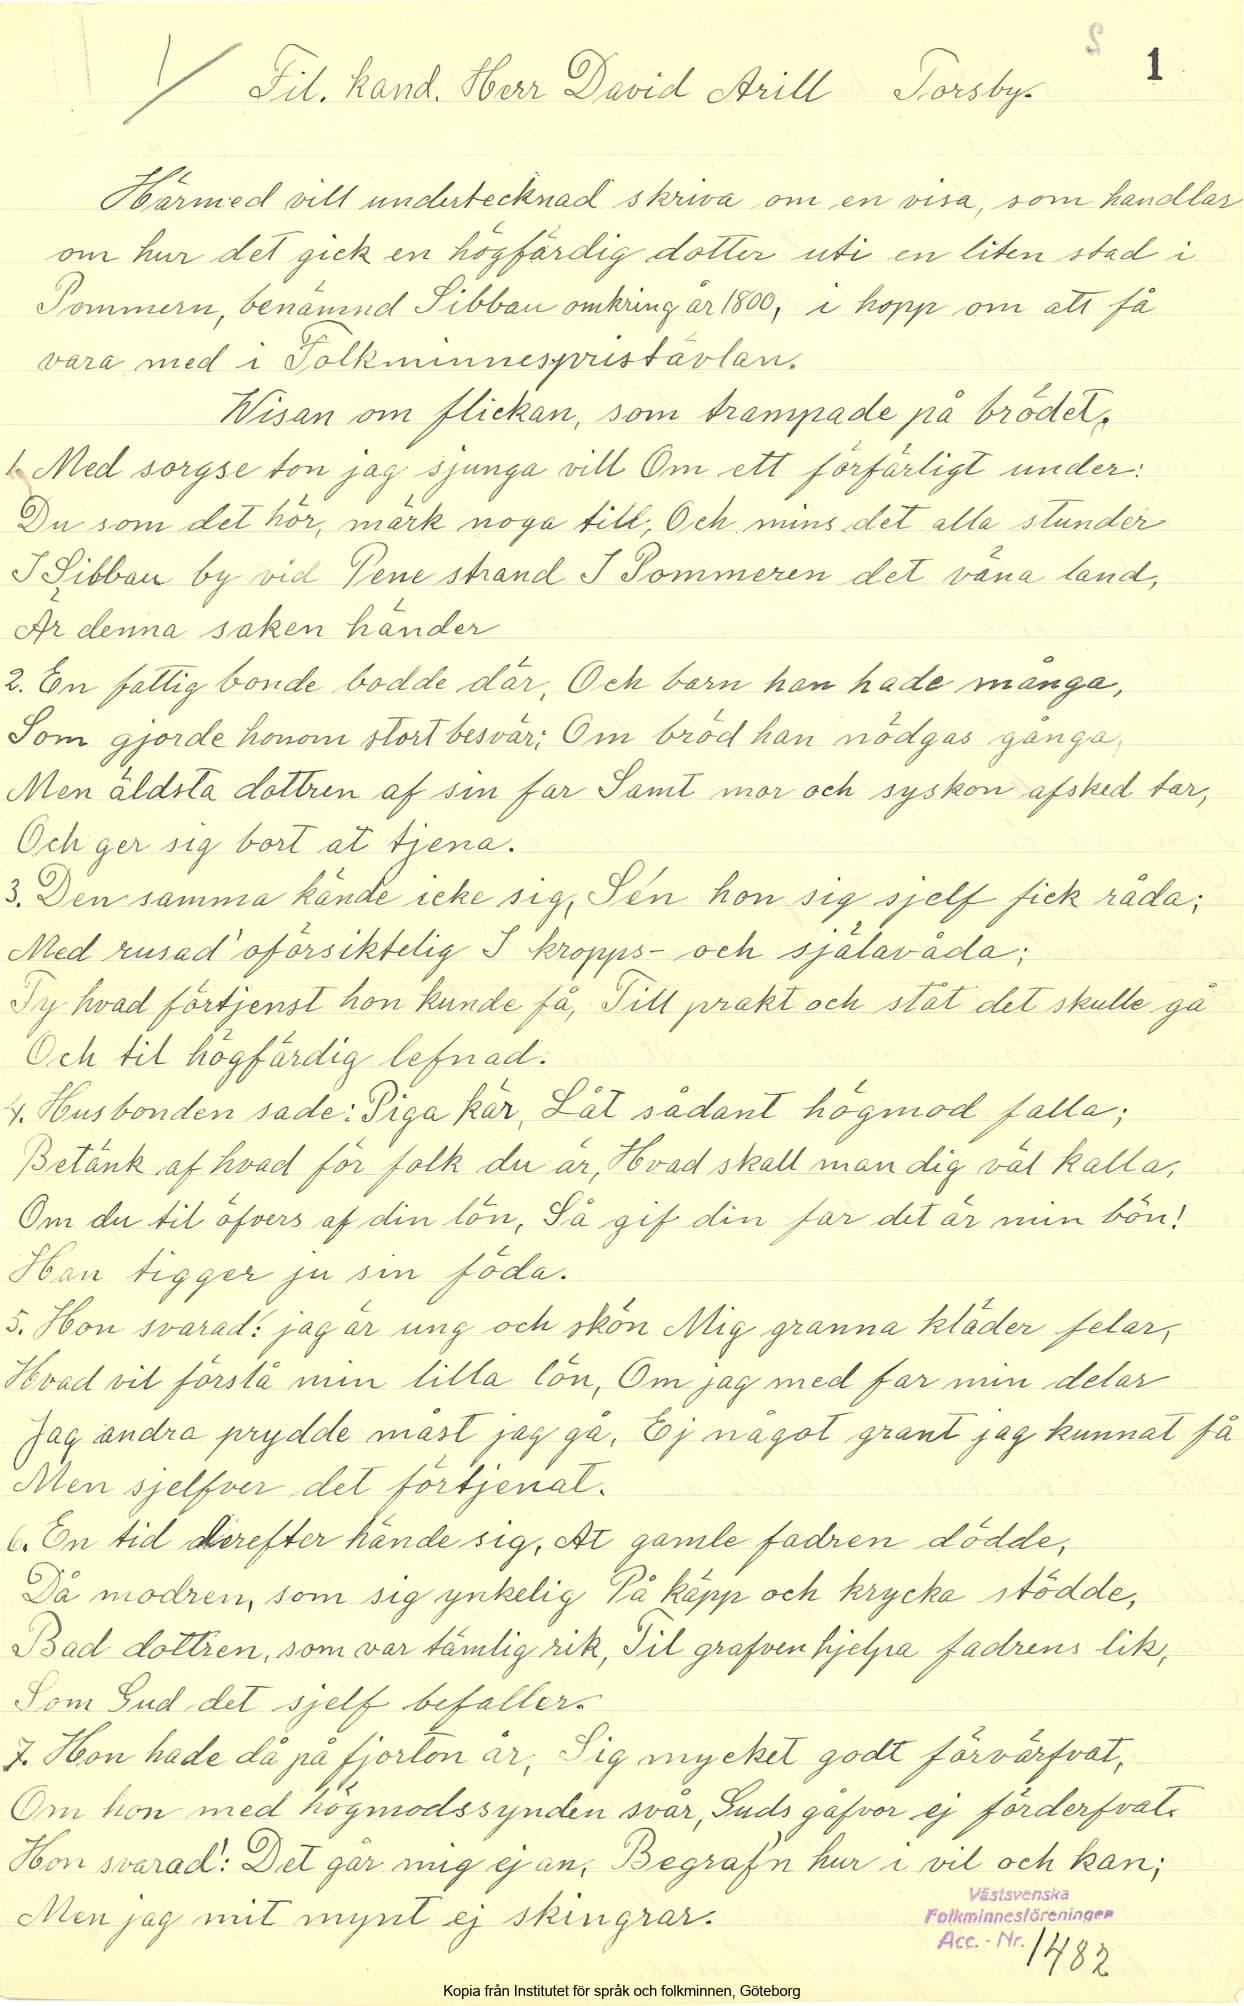 1
Fil. kand. Herr David Arill Torsby.
Härmed vill undertecknad skriva om en visa, som handlar
om hur det gick en högfärdig dotter uti en liten stad i
Pommern, benämnd Sibbau omkring år 1800, i hopp om att få
vara med i Folkminnespristävlan.
Wisan om flickan, som trampade på brödet.
1. Med sorgse ton jag sjunga vill Om ett förfärligt under:
Du som det hör, märk noga till, Och mins det alla stunder
I Sibbau by vid Pene strand I Pommeren det våna land,
Är denna saken händer
2. En fattig bonde bodde där, Och barn han hade många,
Som gjorde honom stort besvär; Om bröd han nödgas gånga,
Men äldsta dottren af sin far Samt mor och syskon afsked tar,
Och ger sig bort at tjena.
3. Den samma kände icke sig, Sén hon sig sjelf fick råda;
Med rusad' oförsiktelig I kropps- och själavåda;
Ty hvad förtjenst hon kunde få, Till prakt och ståt det skulle gå
Och til högfärdig lefnad.
4. Husbonden sade: Piga kär, Låt sådant högmod falla;
Betänk af hvad för folk du är, Hvad skall man dig väl kalla,
Om du til öfvers af din lön, Så gif din far det är min bön!
Han tigger ju sin föda.
5. Hon svarad': jag är ung och skön Mig granna kläder felar,
Hvad vil förslå min lilla lön, Om jag med far min delar
Jag andra prydde måst jag gå, Ej något grant jag kunnat få
Men sjelfver det förtjenat.
6. En tid derefter hände sig, At gamle fadren dödde,
Då modren, som sig ynkelig På käpp och krycka stödde,
Bad dottren, som var tämlig rik, Til grafven hjelpa fadrens lik,
Som Gud det sjelf befaller.
7. Hon hade då på fjorton år, Sig mycket godt förvärfvat,
Om hon med högmodssynden svår, Guds gåfvor ej förderfvat.
Hon svarad': Det går mig ej an, Begraf'n hur i vil och kan;
Men jag mit mynt ej skingrar.
Västsvenska
Folkminnesföreningen
Acc. - Nr. 1482
Kopia från Institutet för språk och folkminnen, Göteborg